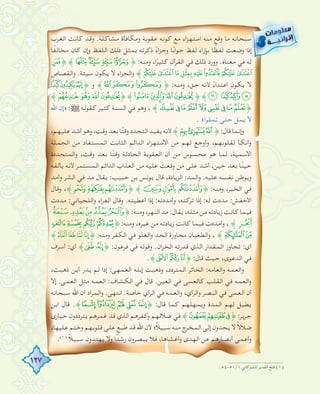 معلومات
إثرائية
سبحانه ما وقع منه استهزاء مع كونه عقوبة ومكافأة مشاكلة. وقد كانت العرب
إذا وضعت لفظا بإزاء لفظ جوابًا وجزاءً ذكرته بمثل ذلك اللفظ وإن كان مخالفا
له في معناه. وورد ذلك في القرآن كثيرًا، ومنه: ﴿وَجَزَٰٓؤُاْ سَيِّئَةٖ سَيِّئَةٞ مِّثۡلُهَاۖ﴾ ﴿فَمَنِ
ٱعۡتَدَىٰ عَلَيۡكُمۡ فَٱعۡتَدُواْ عَلَيۡهِ بِمِثۡلِ مَا ٱعۡتَدَىٰ عَلَيۡكُمۡۚ﴾ والجزاء لا يكون سيئة. والقصاص
لا يكون اعتداءً لأنه حق، ومنه: ﴿وَمَكَرُواْ وَمَكَرَ ٱللَّهُۖ﴾ و ﴿إِنَّهُمۡ يَكِيدُونَ كَيۡدٗا
وَأَكِيدُ كَيۡدٗا﴾ ﴿يُخَٰدِعُونَ ٱللَّهَ وَٱلَّذِينَ ءَامَنُواْ﴾ ﴿يُخَٰدِعُونَ ٱللَّهَ وَهُوَ خَٰدِعُهُمۡ﴾
﴿تَعۡلَمُ مَا فِي نَفۡسِي وَلَآ أَعۡلَمُ مَا فِي نَفۡسِكَۚ﴾، وهو في السنة كثير كقوله ﷺ: «إن الله
لا يمل حتى تملوا».
وإنما قال: ﴿ٱللَّهُ يَسۡتَهۡزِئُ بِهِمۡ﴾ لأنه يفيد التجدد وقتًا بعد وقت، وهو أشد عليهم،
وأنكأ لقلوبهم، وأوجع لهم من الاستهزاء الدائم الثابت المستفاد من الجملة
الاسمية، لما هو محسوس من أن العقوبة الحادثة وقتًا بعد وقت، والمتجددة
حينًا بعد حين، أشد على من وقعت عليه من العذاب الدائم المستمر لأنه يألفه
ويوطن نفسه عليه. والمد: الزيادة، قال يونس بن حبيب: يقال مد في الشر وأمد
في الخير، ومنه: ﴿وَأَمۡدَدۡنَٰكُم بِأَمۡوَٰلٖ وَبَنِينَ﴾ ﴿وَأَمۡدَدۡنَٰهُم بِفَٰكِهَةٖ وَلَحۡمٖ﴾، وقال
الأخفش: مددت له: إذا تركته، وأمددته: إذا أعطيته. وقال الفراء واللحياني: مددت
فيما كانت زيادته من مثله، يقال: مد النهر، ومنه: ﴿وَٱلۡبَحۡرُ يَمُدُّهُۥ مِنۢ بَعۡدِهِۦ سَبۡعَةُ
أَبۡحُرٖ﴾، وأمددت فيما كانت زيادته من غيره، ومنه: ﴿يُمۡدِدۡكُمۡ رَبُّكُم بِخَمۡسَةِ ءَالَٰفٖ
مِّنَ ٱلۡمَلَٰٓئِكَةِ﴾، والطغيان مجاوزة الحد والغلو في الكفر ومنه: ﴿إِنَّا لَمَّا طَغَا ٱلۡمَآءُ﴾
أي: تجاوز المقدار الذي قدرته الخزان، وقوله في فرعون: ﴿إِنَّهُۥ طَغَىٰ﴾ أي: أسرف
في الدعوى، حيث قال: ﴿أَنَا۠ رَبُّكُمُ ٱلۡأَعۡلَىٰ﴾.
والعمه والعامه: الحائر المتردد، وذهبت إبله العمهى: إذا لم يدر أين ذهبت،
والعمه في القلب كالعمى في العين. قال في الكشاف: العمه مثل العمى، إلا
أن العمى في البصر والرأي، والعمه في الرأي خاصة. انتهى. والمراد أن الله سبحانه
يطيل لهم المدة ويمهلهم كما قال: ﴿إِنَّمَا نُمۡلِي لَهُمۡ لِيَزۡدَادُوٓاْ إِثۡمٗاۖ﴾. قال ابن
جرير: ﴿فِي طُغۡيَٰنِهِمۡ يَعۡمَهُونَ﴾ في ضلالهم وكفرهم الذي قد غمرهم يترددون حيارى
ضلالًا لا يجدون إلى المخرج منه سبيلًا؛ لأن الله قد طبع على قلوبهم وختم عليها،
وأعمى أبصارهم عن الهدى وأغشاها، فلا يبصرون رشدًا ولا يهتدون سبيلًا (١).
(١) فتح القدير للشوكاني ١ / ٥١-٥٤.
١٢٧